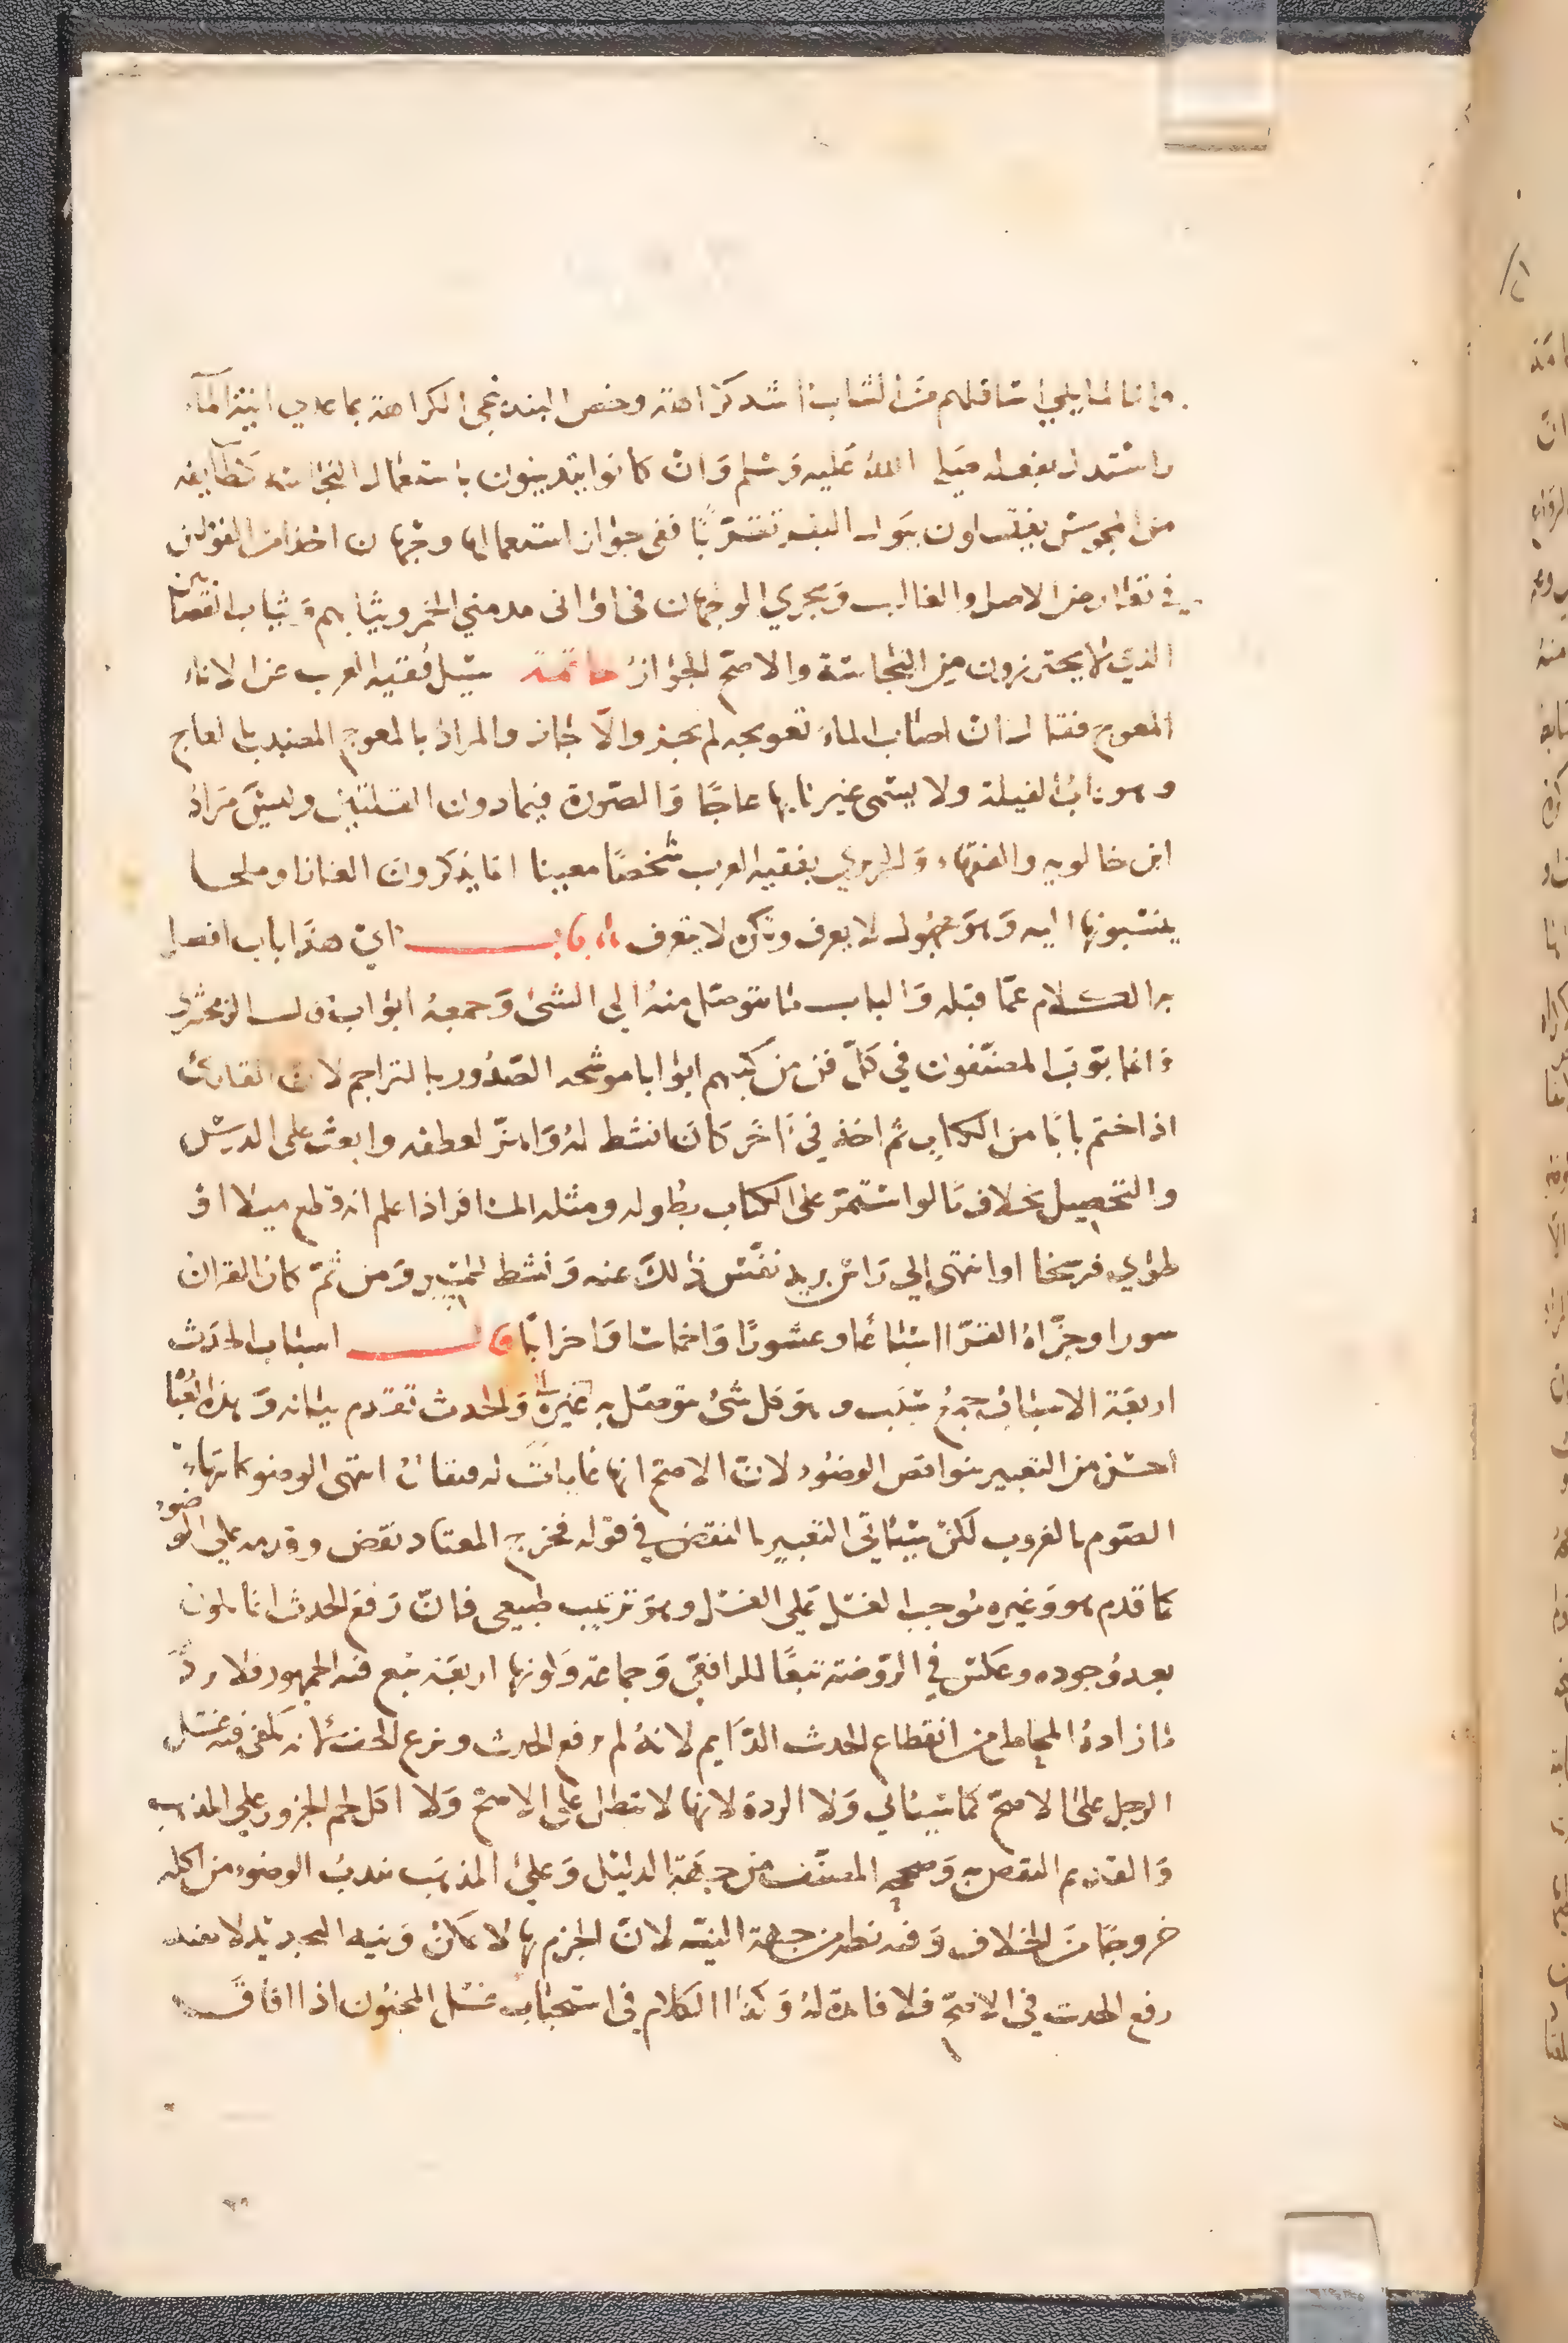 وانا لما يلي اسافلهم من الثياب اشد كراهة وخص البندنيجي الكراهة بما عدي انية الماء
واستدل بفعله صلى الله عليه وسلم وان كانوا يتدينون باستعمال النجاسة كطايفة
من المجوس يغتسلون ببول البقر تقرّبًا ففي جواز استعمالها وجهان اخذا من القولين
في تعارض الاصل والغالب ويجري الوجهان في اواني مدمني الخمر وثيابهم وثياب القصابين
الذين لا يحترزون من النجاسة والاصح الجواز خاتمة سيل فقيه العرب عن الاناء
المعوج فقال ان اصاب الماء تعويجه لم يجز والّا جاز والمراد بالمعوج المضبب بالعاج
وهو ناب الفيلة ولا يسمى غير نابها عاجًا والصورة فيما دون القلتين وليس مراد
ابن خالويه والفقهاء والحريري بفقيه العرب شخصًا معينا انما يذكرون الغازا وملحا
ينسبونها اليه وهو مجهول لا يعرف ونكرة لا تتعرف باب اي هذا باب افصل
به الكلام عمّا قبله والباب ما يتوصل منه الى الشئ وجمعه ابواب قال الزمخشري
وانما بوّب المصنّفون في كلّ فن من كتبهم ابوابا موشحة الصدور بالتراجم لان القارئ
اذا ختم بابًا من الكتاب ثم اخذ في آخر كان انشط له واهزّ لعطفه وابعث على الدرس
والتحصيل بخلاف ما لو استمرّ على الكتاب بطوله ومثله المسافر اذا علم انه قطع ميلا او
طوي فرسخا او انتهى الي راس بريد نفّس ذلك عنه ونشط للسير ومن ثمّ كان القران
سورا وجزّاه القرّا اسباعًا وعشورًا واخماسا واحزابًا قال اسباب الحدث
اربعة الاسباب جمع سبب وهو كل شئ يتوصل به الى غيره والحدث تقدم بيانه وهذا
احسن من التعبير بنواقض الوضوء لان الاصح انها غايات له فيقال انتهى الوضو كانتهاء
الصّوم بالغروب لكن سياتي التعبير بالنقض في قوله فخرج المعتاد نقض وقدمه علي الوضوء
كما قدم هو وغيره موجب الغسل علي الغسل وهو ترتيب طبيعي فان رفع الحدث انما يكون
بعد وجوده وعكس في الروضة تبعًا للرافعي وجماعة وكونها اربعة تبع فيه الجمهور فلا يردّ
ما زاده المحاملي من انقطاع الحدث الدّايم لانه لم يرفع الحدث ونزع الخف لانه يكفي فيه غسل
الرجل علي الاصح كما سياتي ولا الردة لانها لا تبطل على الاصح ولا اكل لحم الجزور علي المذهب
والقديم النقض به وصححه المصنّف من جهة الدليل وعلى المذهب يندب الوضوء من اكله
خروجًا من الخلاف وفيه نظر من جهة النية لان الجزم بها لا يمكن ونية التجديد لا تفيد
رفع الحدث في الاصح فلا فائدة له وكذا الكلام في استحباب غسل المجنون اذا افاق